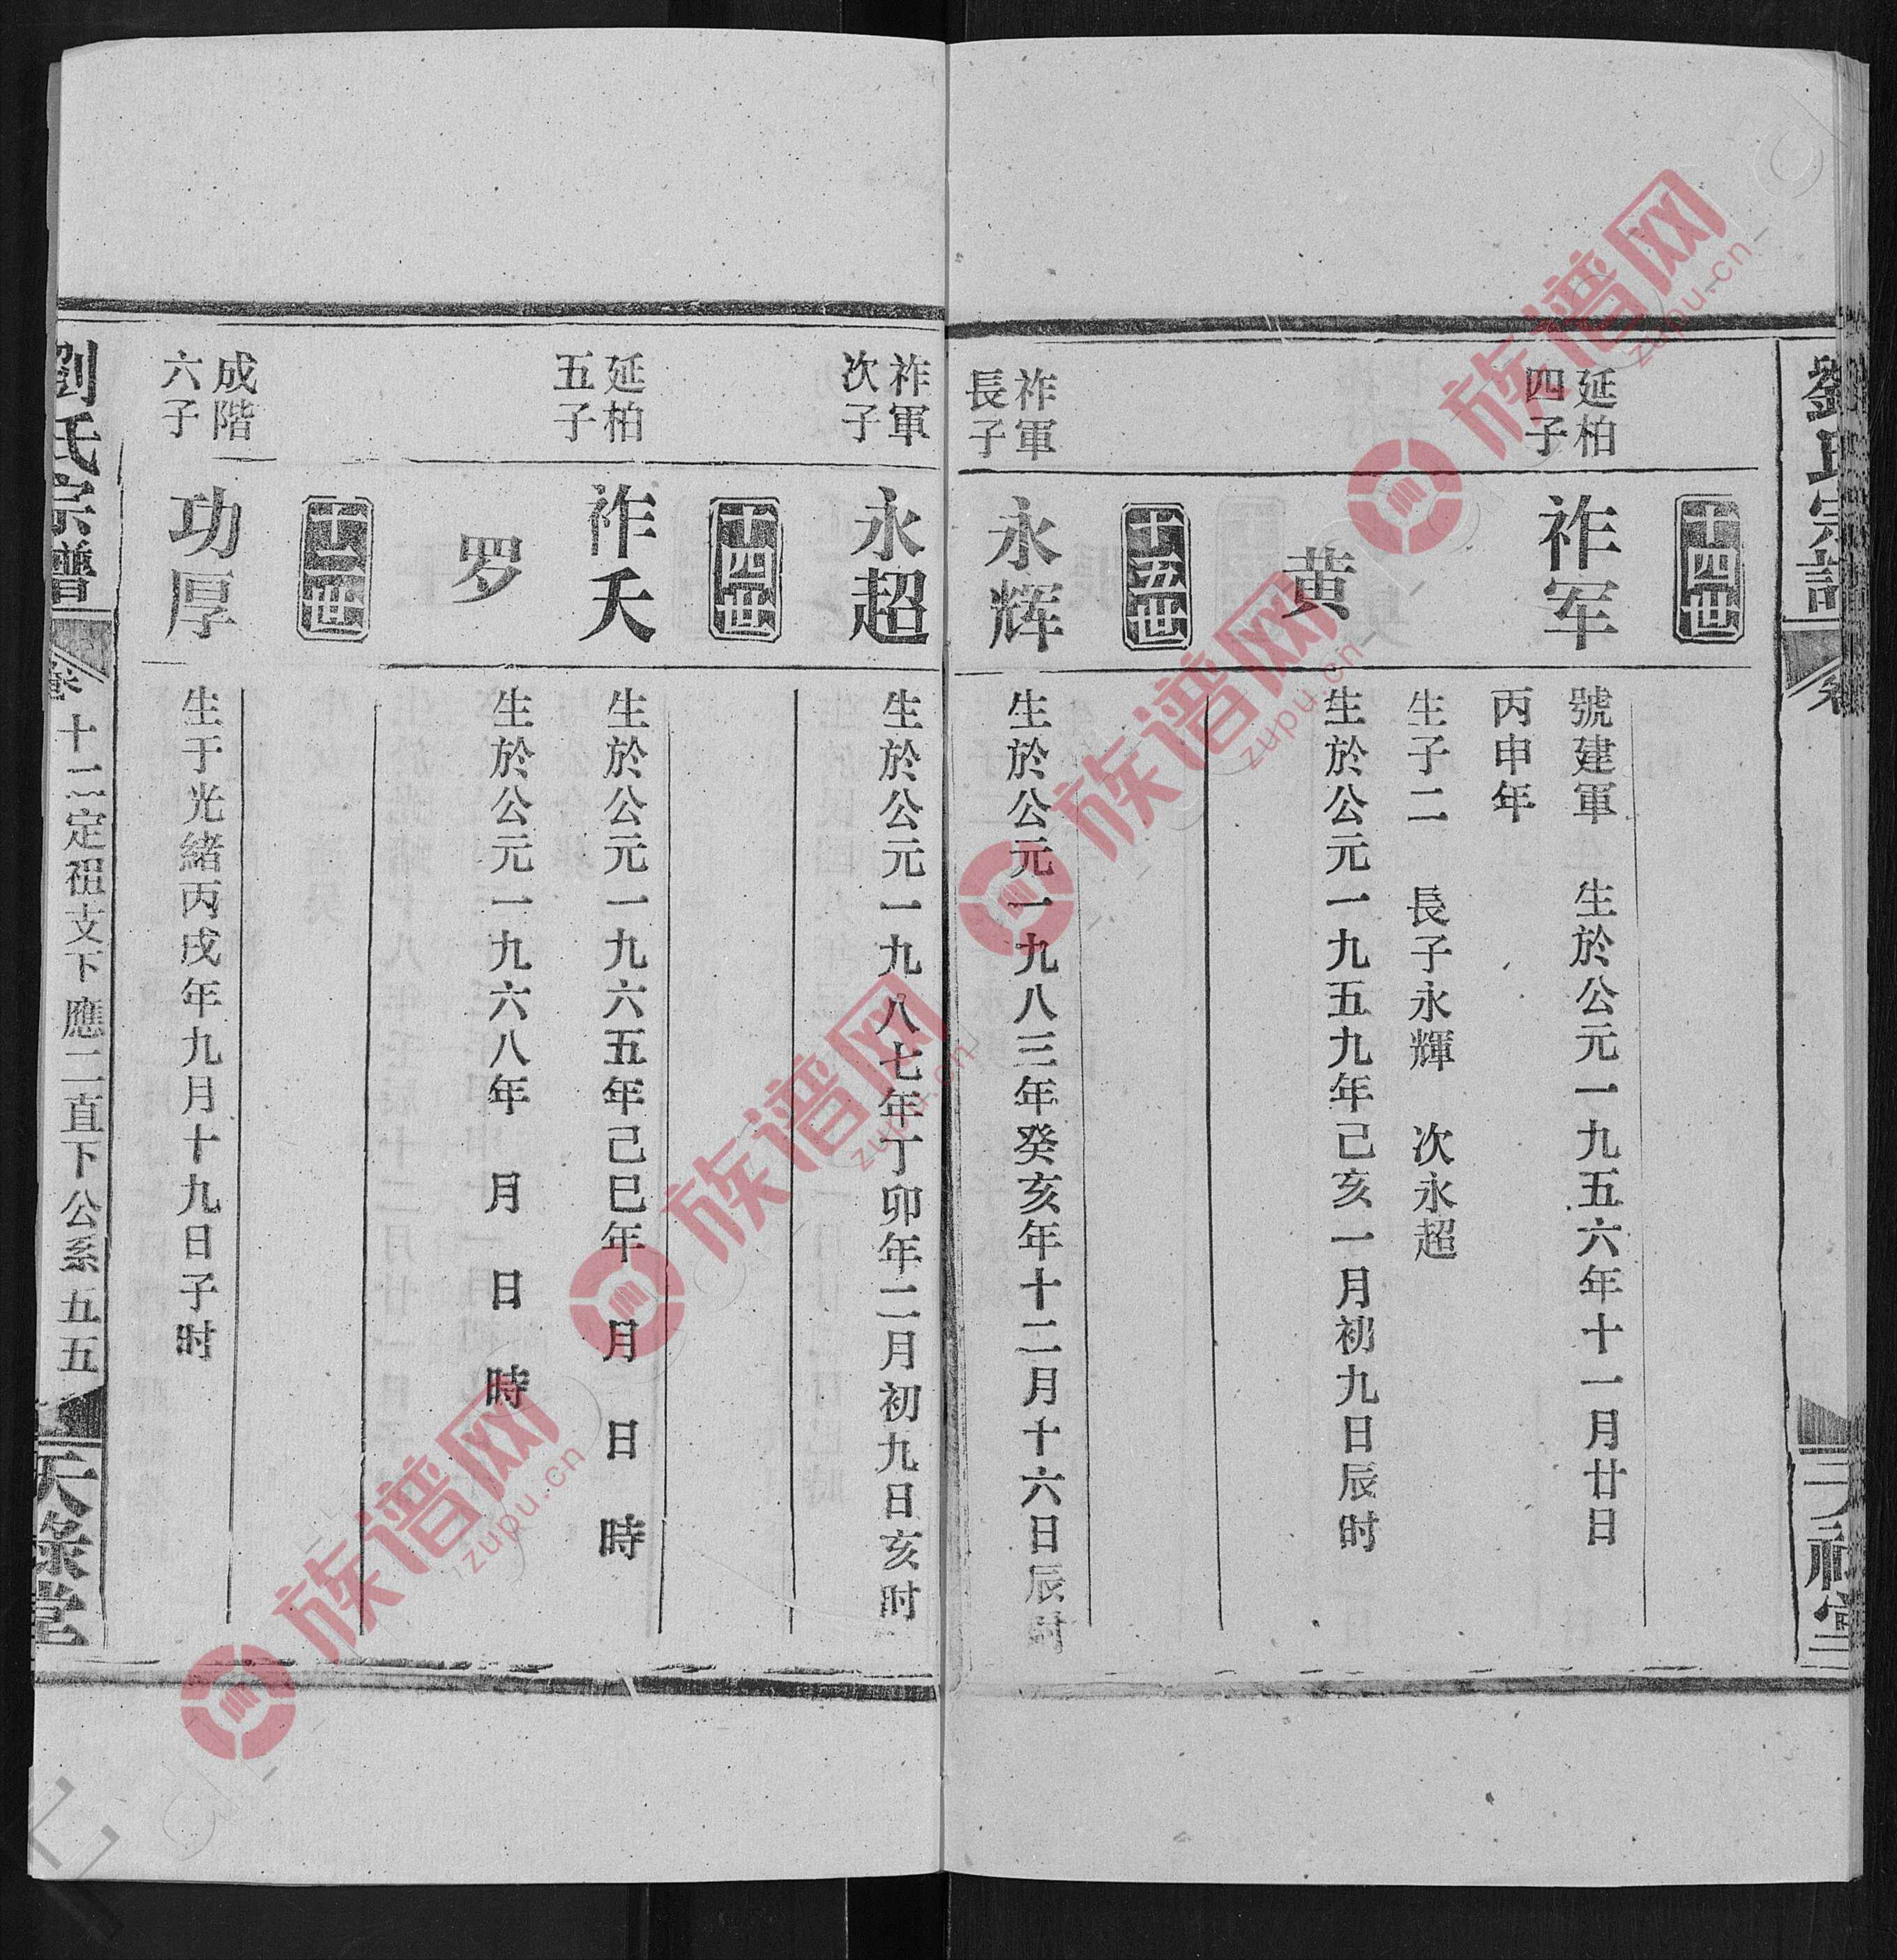 劉氏宗譜
卷
天祿堂
十四世
延柏
四子
祚军
號建軍 生於公元一九五六年十一月廿日
丙申年
生子二 長子永輝 次永超
黄
生於公元一九五九年己亥一月初九日辰时
十五世
祚軍
長子
永辉
生於公元一九八三年癸亥年十二月十六日辰时
祚軍
次子
永超
生於公元一九八七年丁卯年二月初九日亥时
十四世
延柏
五子
祚天
生於公元一九六五年己巳年 月 日 時
罗
生於公元一九六八年 月 日 時
十二世
成階
六子
功厚
生于光緒丙戌年九月十九日子时
劉氏宗譜
卷十二定祖支下應二直下公系 五五
天祿堂
族谱网
zupu.cn
族谱网
zupu.cn
族谱网
zupu.cn
族谱网
zupu.cn